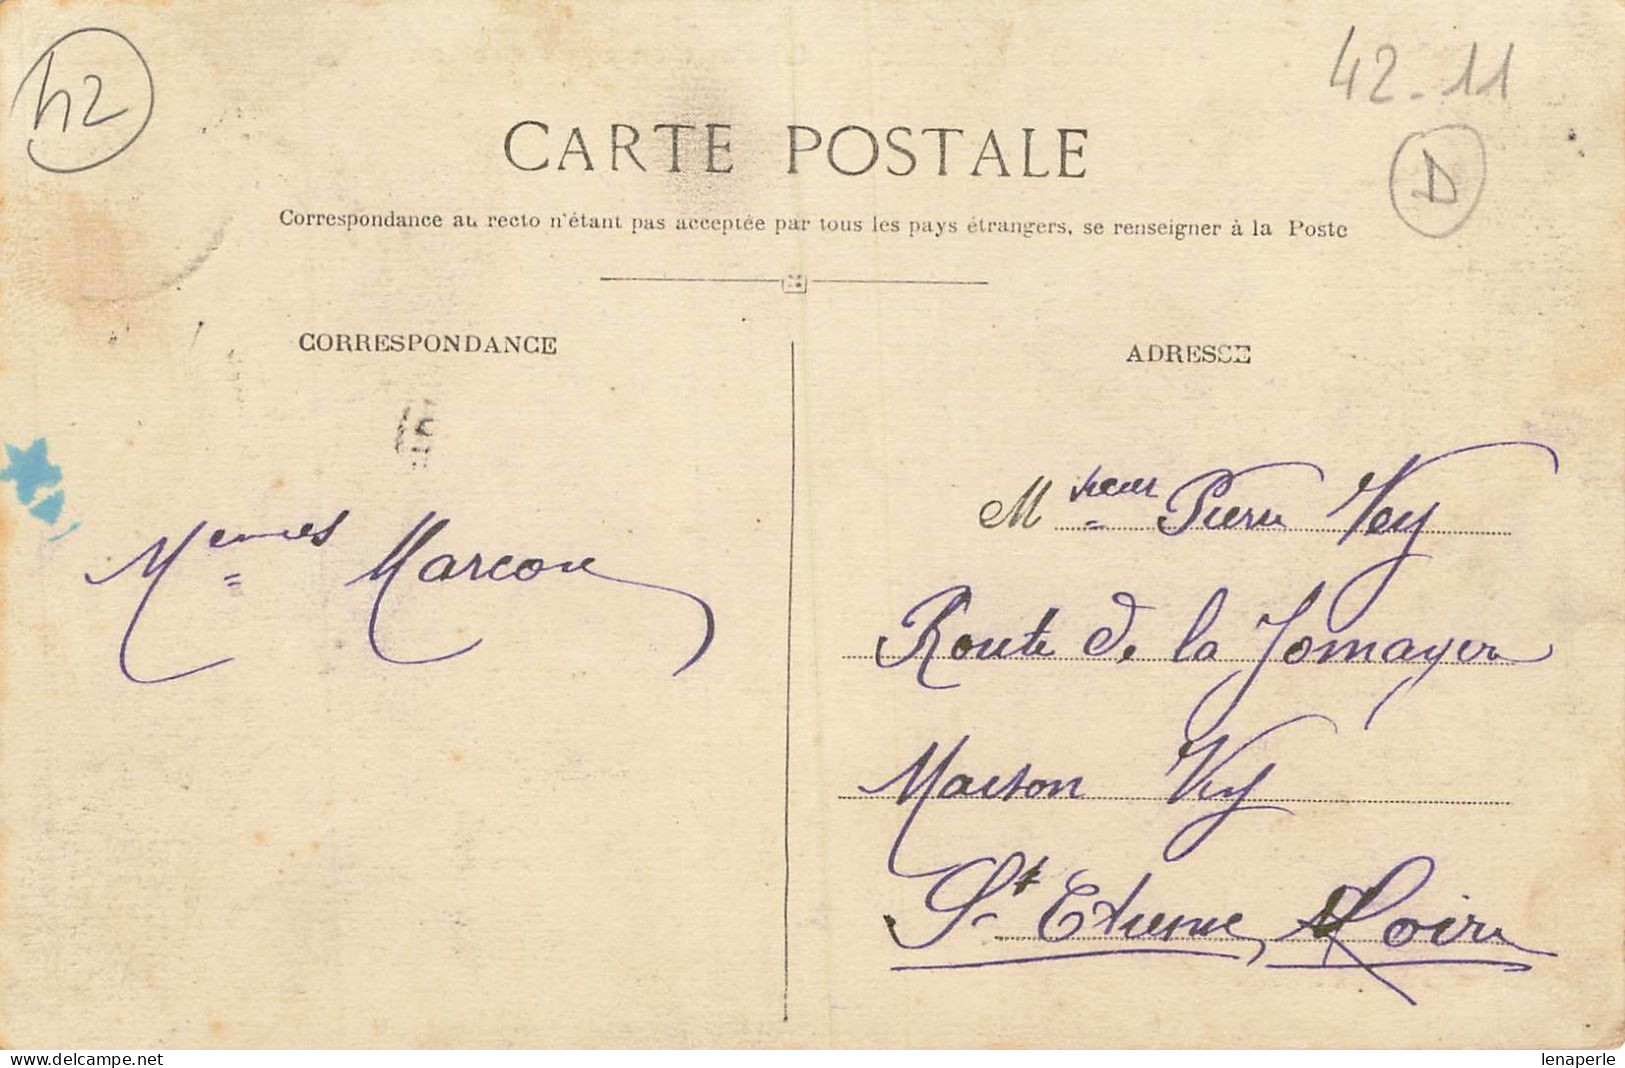 42
42-11
D
CARTE POSTALE
Correspondance au recto n'étant pas acceptée par tous les pays étrangers, se renseigner à la Poste
CORRESPONDANCE
ADRESSE
Marcon
M Pierre Vey
Route de la Jomayere
Maison Vey
St Etienne, Loire
www.delcampe.net
lenaperle